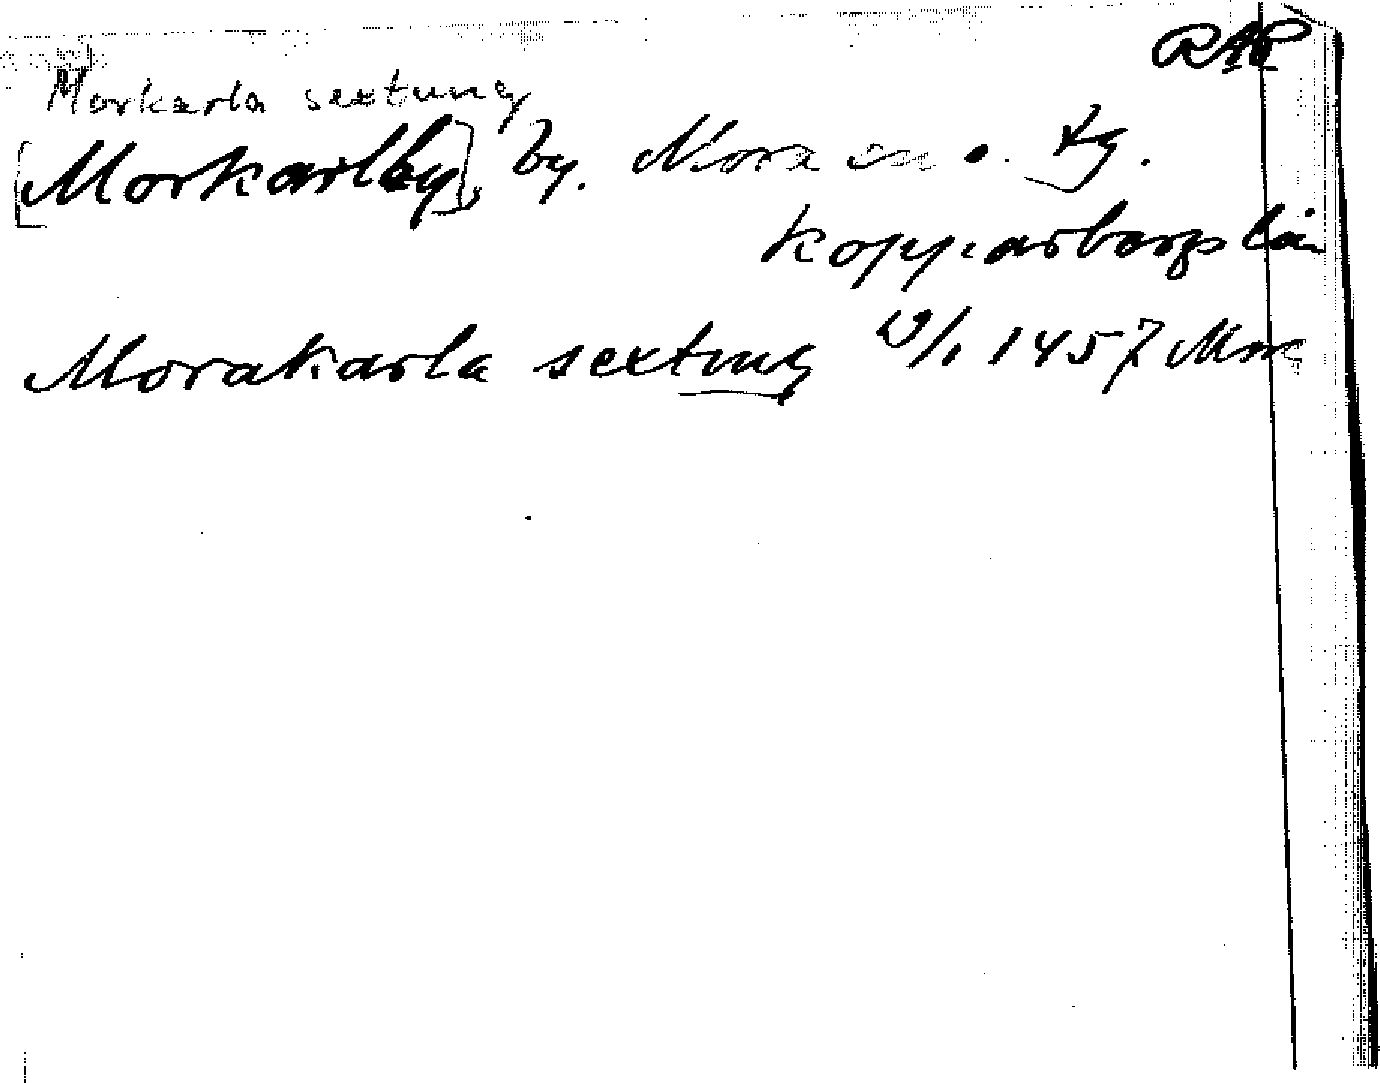 RAP
Morkarla sextung
[Morkarlby], by. Mora sn o. tg.
Kopparbergs län
Morakarla sextung 19/1 1457 Mora